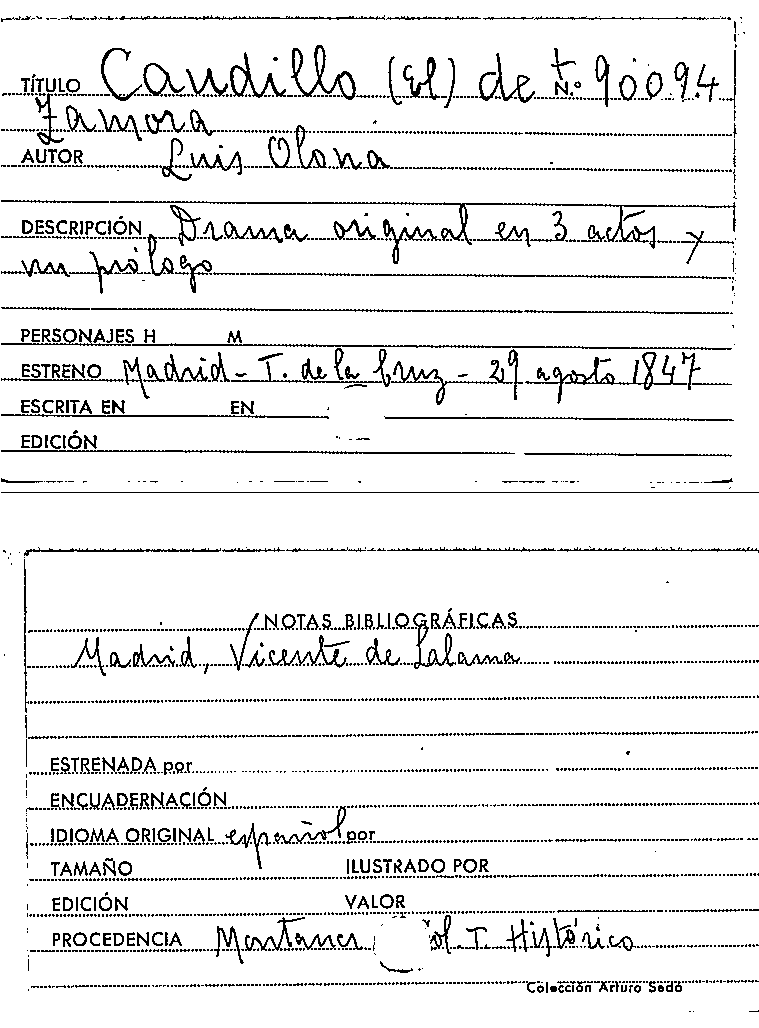 TÍTULO Caudillo (El) de t N.º 90094
Zamora
AUTOR Luis Olona
DESCRIPCIÓN Drama original en 3 actos y
un prólogo
PERSONAJES H M
ESTRENO Madrid - T. de la Cruz - 29 agosto 1847
ESCRITA EN EN
EDICIÓN
NOTAS BIBLIOGRÁFICAS
Madrid, Vicente de Lalama
ESTRENADA por
ENCUADERNACIÓN
IDIOMA ORIGINAL español por
TAMAÑO ILUSTRADO POR
EDICIÓN VALOR
PROCEDENCIA Montaner ol. T. Histórico
Colección Arturo Sedó